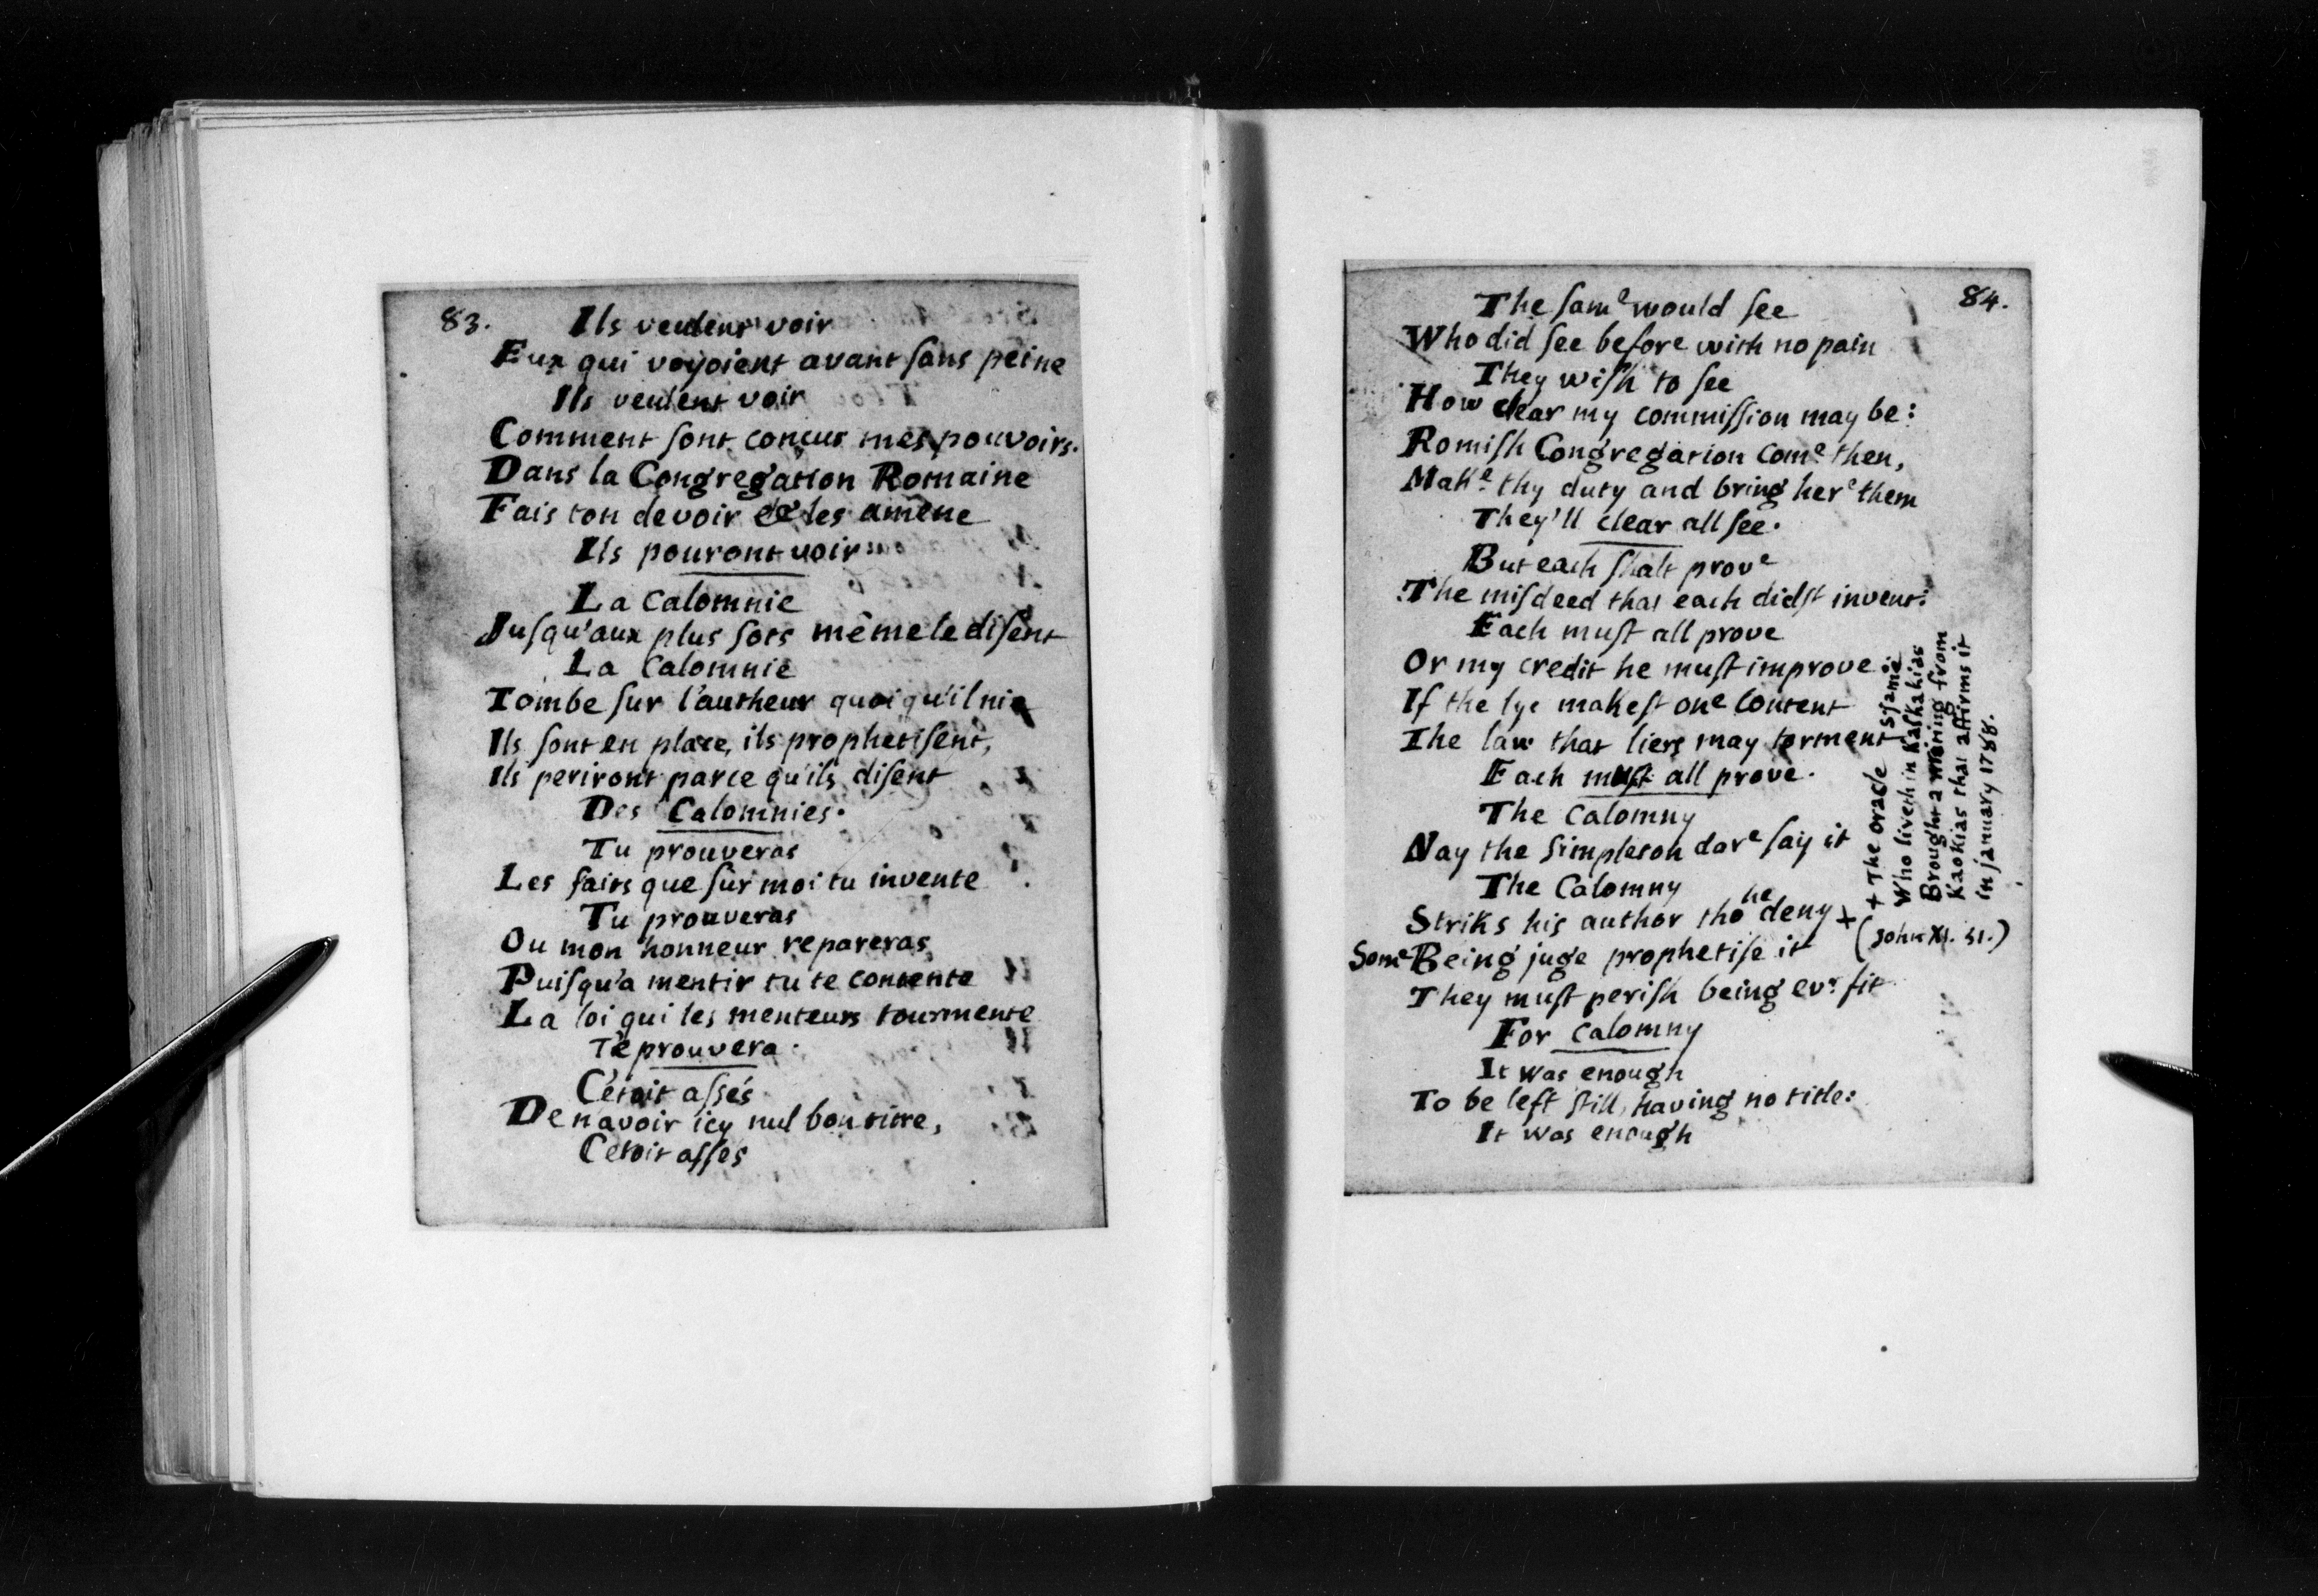 83.
Ils veulent voir
Eux qui voyoient avant sans peine
Ils veulent voir
Comment sont concus mes pouvoirs.
Dans la Congregation Romaine
Fais ton devoir et les amene
Ils pouront voir
La Calomnie
Jusqu'aux plus sots même le disent
La Calomnie
Tombe sur l'autheur quoiqu'il nie
Ils sont en place, ils prophetisent,
Ils periront parce qu'ils disent
Des Calomnies.
Tu prouveras
Les faits que sur moi tu invente
Tu prouveras
Ou mon honneur repareras
Puisqu'a mentir tu te contente
La loi qui les menteurs tourmente
Te prouvera.
C'étoit assés
De n avoir icy nul bon titre,
Cétoit assés
84.
The same would see
Who did see before with no pain
They wish to see
How clear my commission may be:
Romish Congregation come then,
Make thy duty and bring here them
They'll clear all see.
But each shalt prove
The misdeed that each didst invent:
Each must all prove
Or my credit he must improve
If the lye makest one content
The law that liers may torment
Each must all prove.
The Calomny
Nay the simpleton dare say it
The Calomny
Striks his author tho he deny +
Some Being juge prophetise it
They must perish being evr fit
For Calomny
It was enough
To be left still, having no title:
It was enough
+ The oracle
Who liveth in Kaskakias
Brought a writing from
Kaokias that affirms it
in january 1788.
(John XI. 51.)